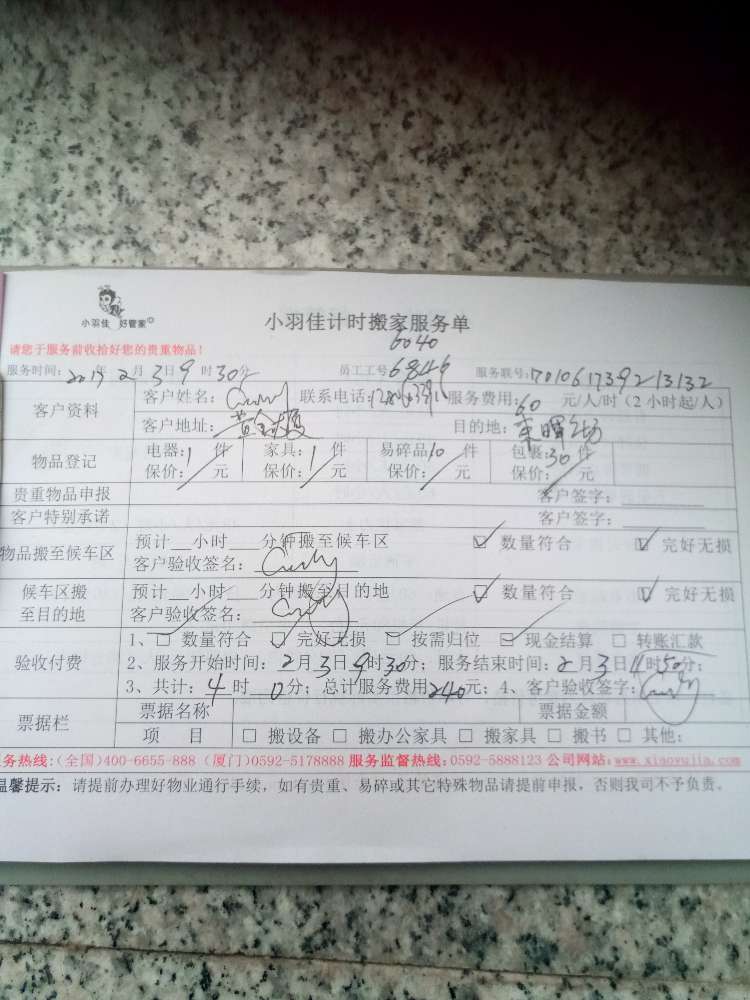 小羽佳 好管家
小羽佳计时搬家服务单
6040
请您于服务前收拾好您的贵重物品!
服务时间: 2017年 2月 3日 9时 30分 员工工号 6846 服务联号: 1701061739213132
客户资料 客户姓名: 联系电话: 服务费用: 60 元/人/时(2小时起/人)
客户地址: 目的地:
物品登记 电器: 1 件 家具: 1 件 易碎品 10 件 包裹: 30 件
保价: 元 保价: 元 保价: 元 保价: 元
贵重物品申报 客户签字:
客户特别承诺 客户签字:
物品搬至候车区 预计__小时__分钟搬至候车区 ☑ 数量符合 ☑ 完好无损
客户验收签名:
候车区搬至目的地 预计__小时__分钟搬至目的地 ☑ 数量符合 ☑ 完好无损
客户验收签名:
验收付费 1、☐ 数量符合 ☑ 完好无损 ☑ 按需归位 ☑ 现金结算 ☐ 转账汇款
2、服务开始时间: 2月3日9时30分; 服务结束时间: 2月3日11时50分;
3、共计: 4时0分; 总计服务费用240元; 4、客户验收签字:
票据栏 票据名称 票据金额
项 目 ☐ 搬设备 ☐ 搬办公家具 ☐ 搬家具 ☐ 搬书 ☐ 其他:
务热线:(全国)400-6655-888 (厦门)0592-5178888 服务监督热线:0592-5888123 公司网站:www.xiaoyujia.com
温馨提示: 请提前办理好物业通行手续, 如有贵重、易碎或其它特殊物品请提前申报, 否则我司不予负责。